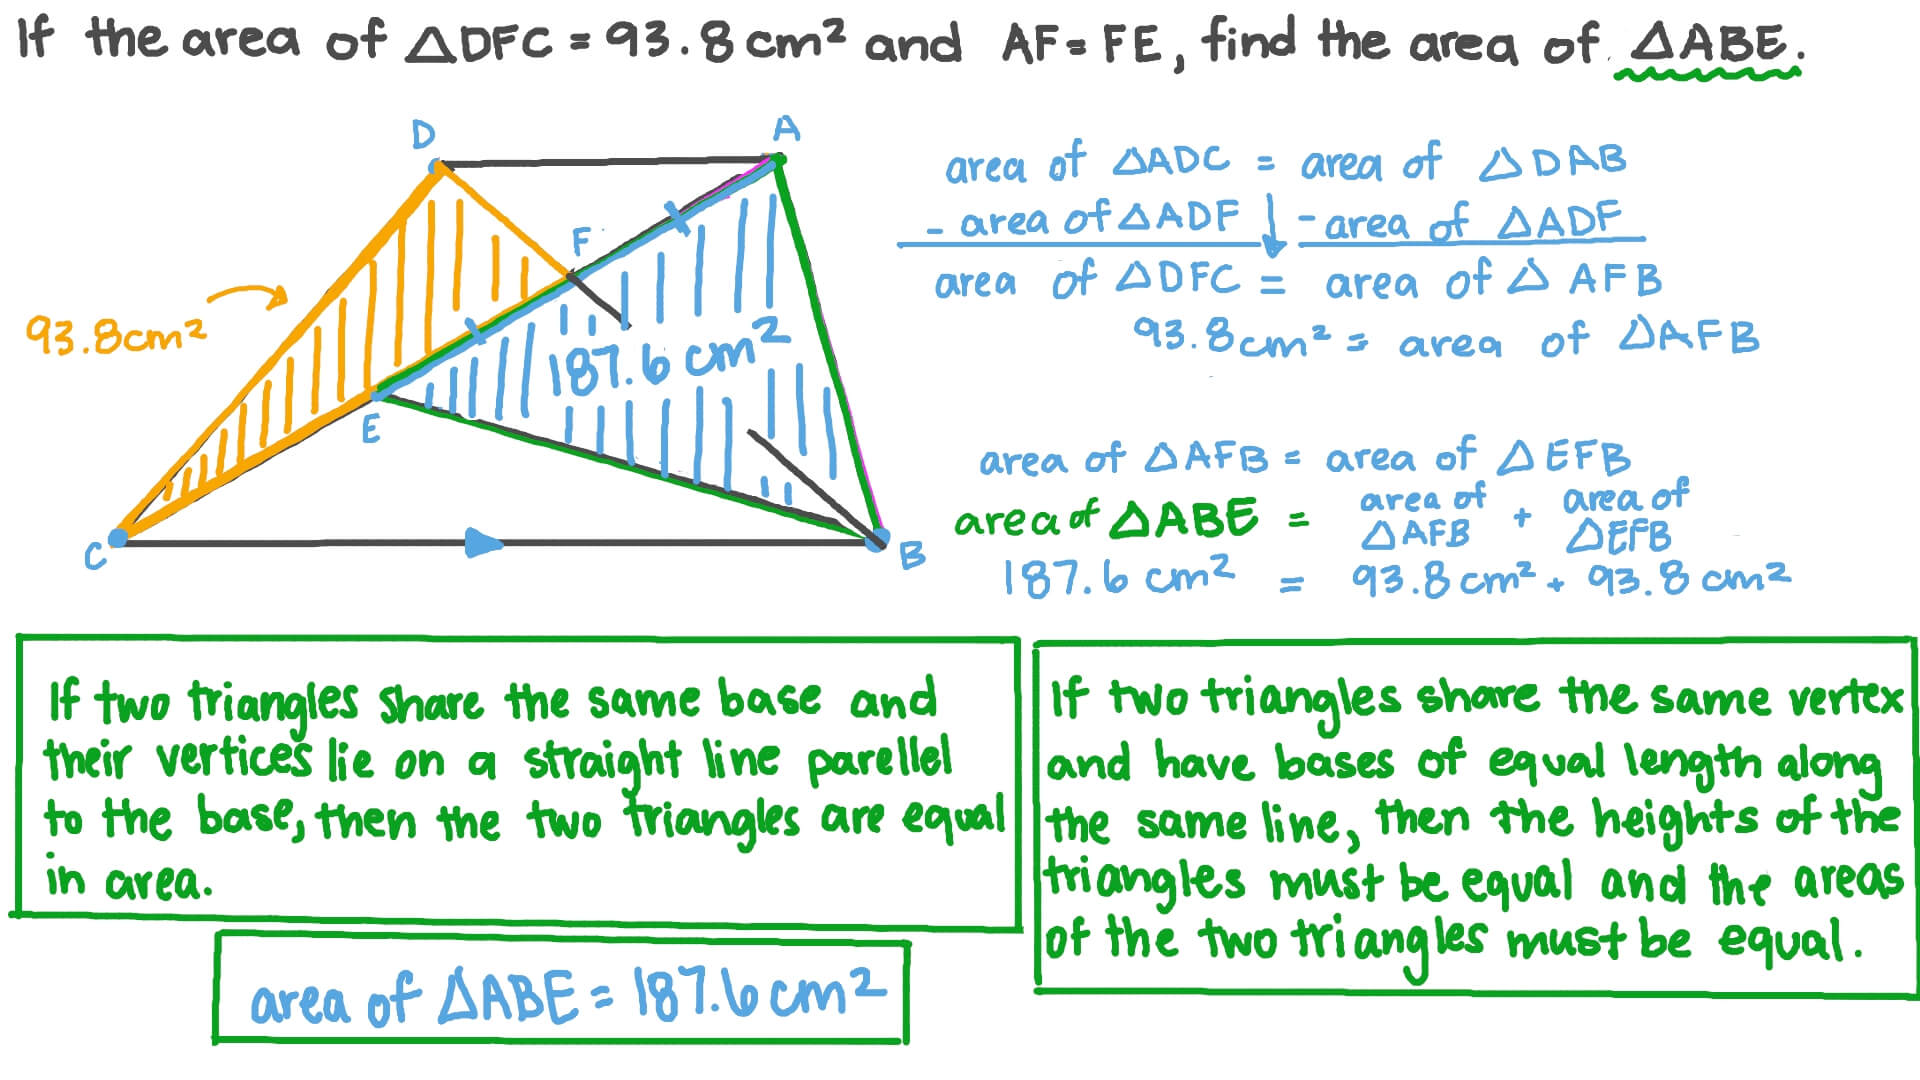 If the area of △DFC = 93.8 cm² and AF = FE, find the area of △ABE.
D
A
F
93.8cm²
187.6 cm²
E
C
B
area of △ADC = area of △DAB
- area of △ADF ↓ - area of △ADF
area of △DFC = area of △ AFB
93.8cm² = area of △AFB
area of △AFB = area of △EFB
area of △ABE = area of △AFB + area of △EFB
187.6 cm² = 93.8 cm² + 93.8 cm²
If two triangles share the same base and
their vertices lie on a straight line parellel
to the base, then the two triangles are equal
in area.
If two triangles share the same vertex
and have bases of equal length along
the same line, then the heights of the
triangles must be equal and the areas
of the two triangles must be equal.
area of △ABE = 187.6 cm²